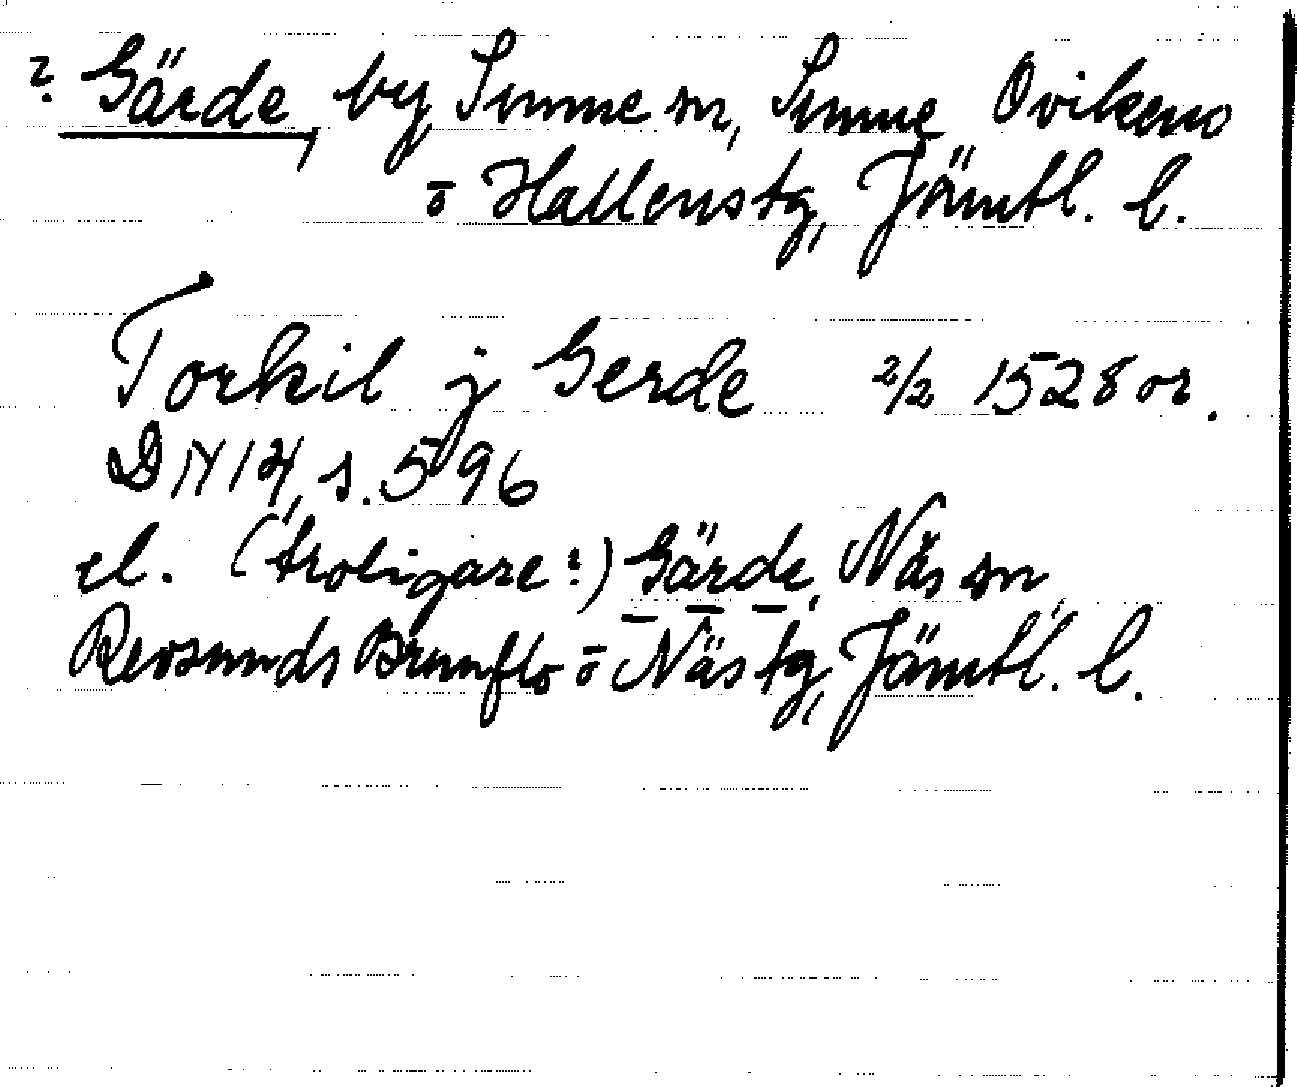 ? Gärde, by, Sunne sn, Sunne Ovikens
o Hallens tg, Jämtl. l.
Torkil j Gerde 2/2 1528 or.
DN 14, s. 596
el. (troligare?) Gärde, Näs sn,
Revsunds Brunflo o Näs tg, Jämtl. l.